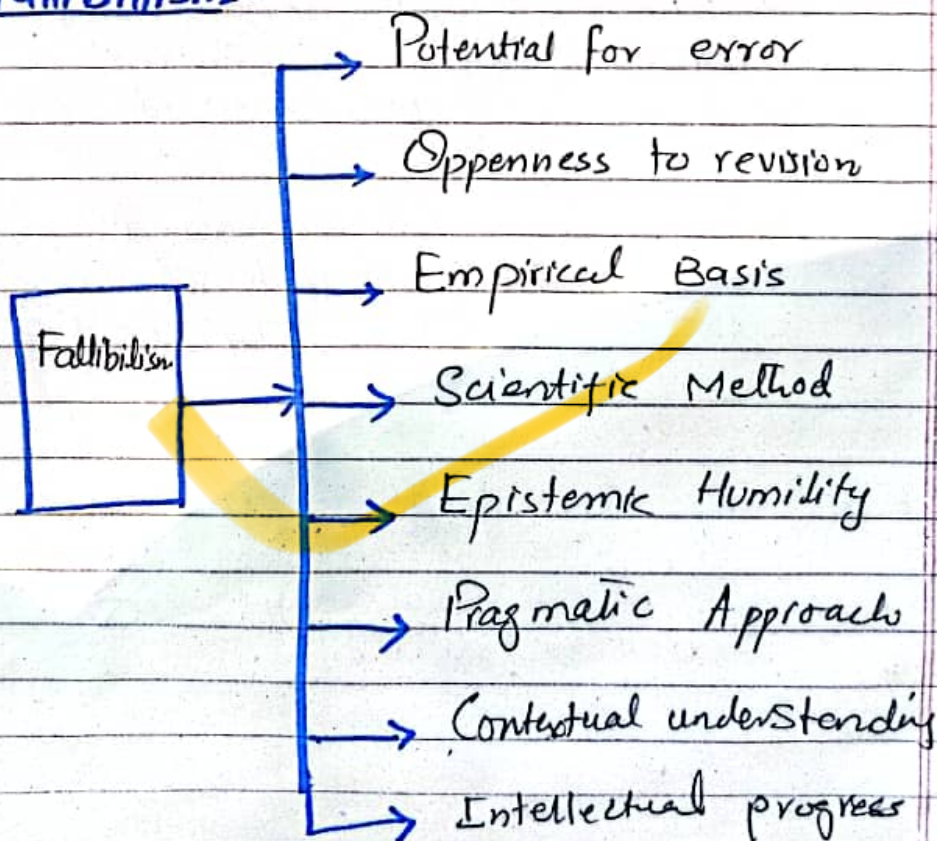 Potential for error
Oppenness to revision
Empirical Basis
Fallibilism
Scientific Method
Epistemic Humility
Pragmatic Approach
Contextual understanding
Intellectual progress